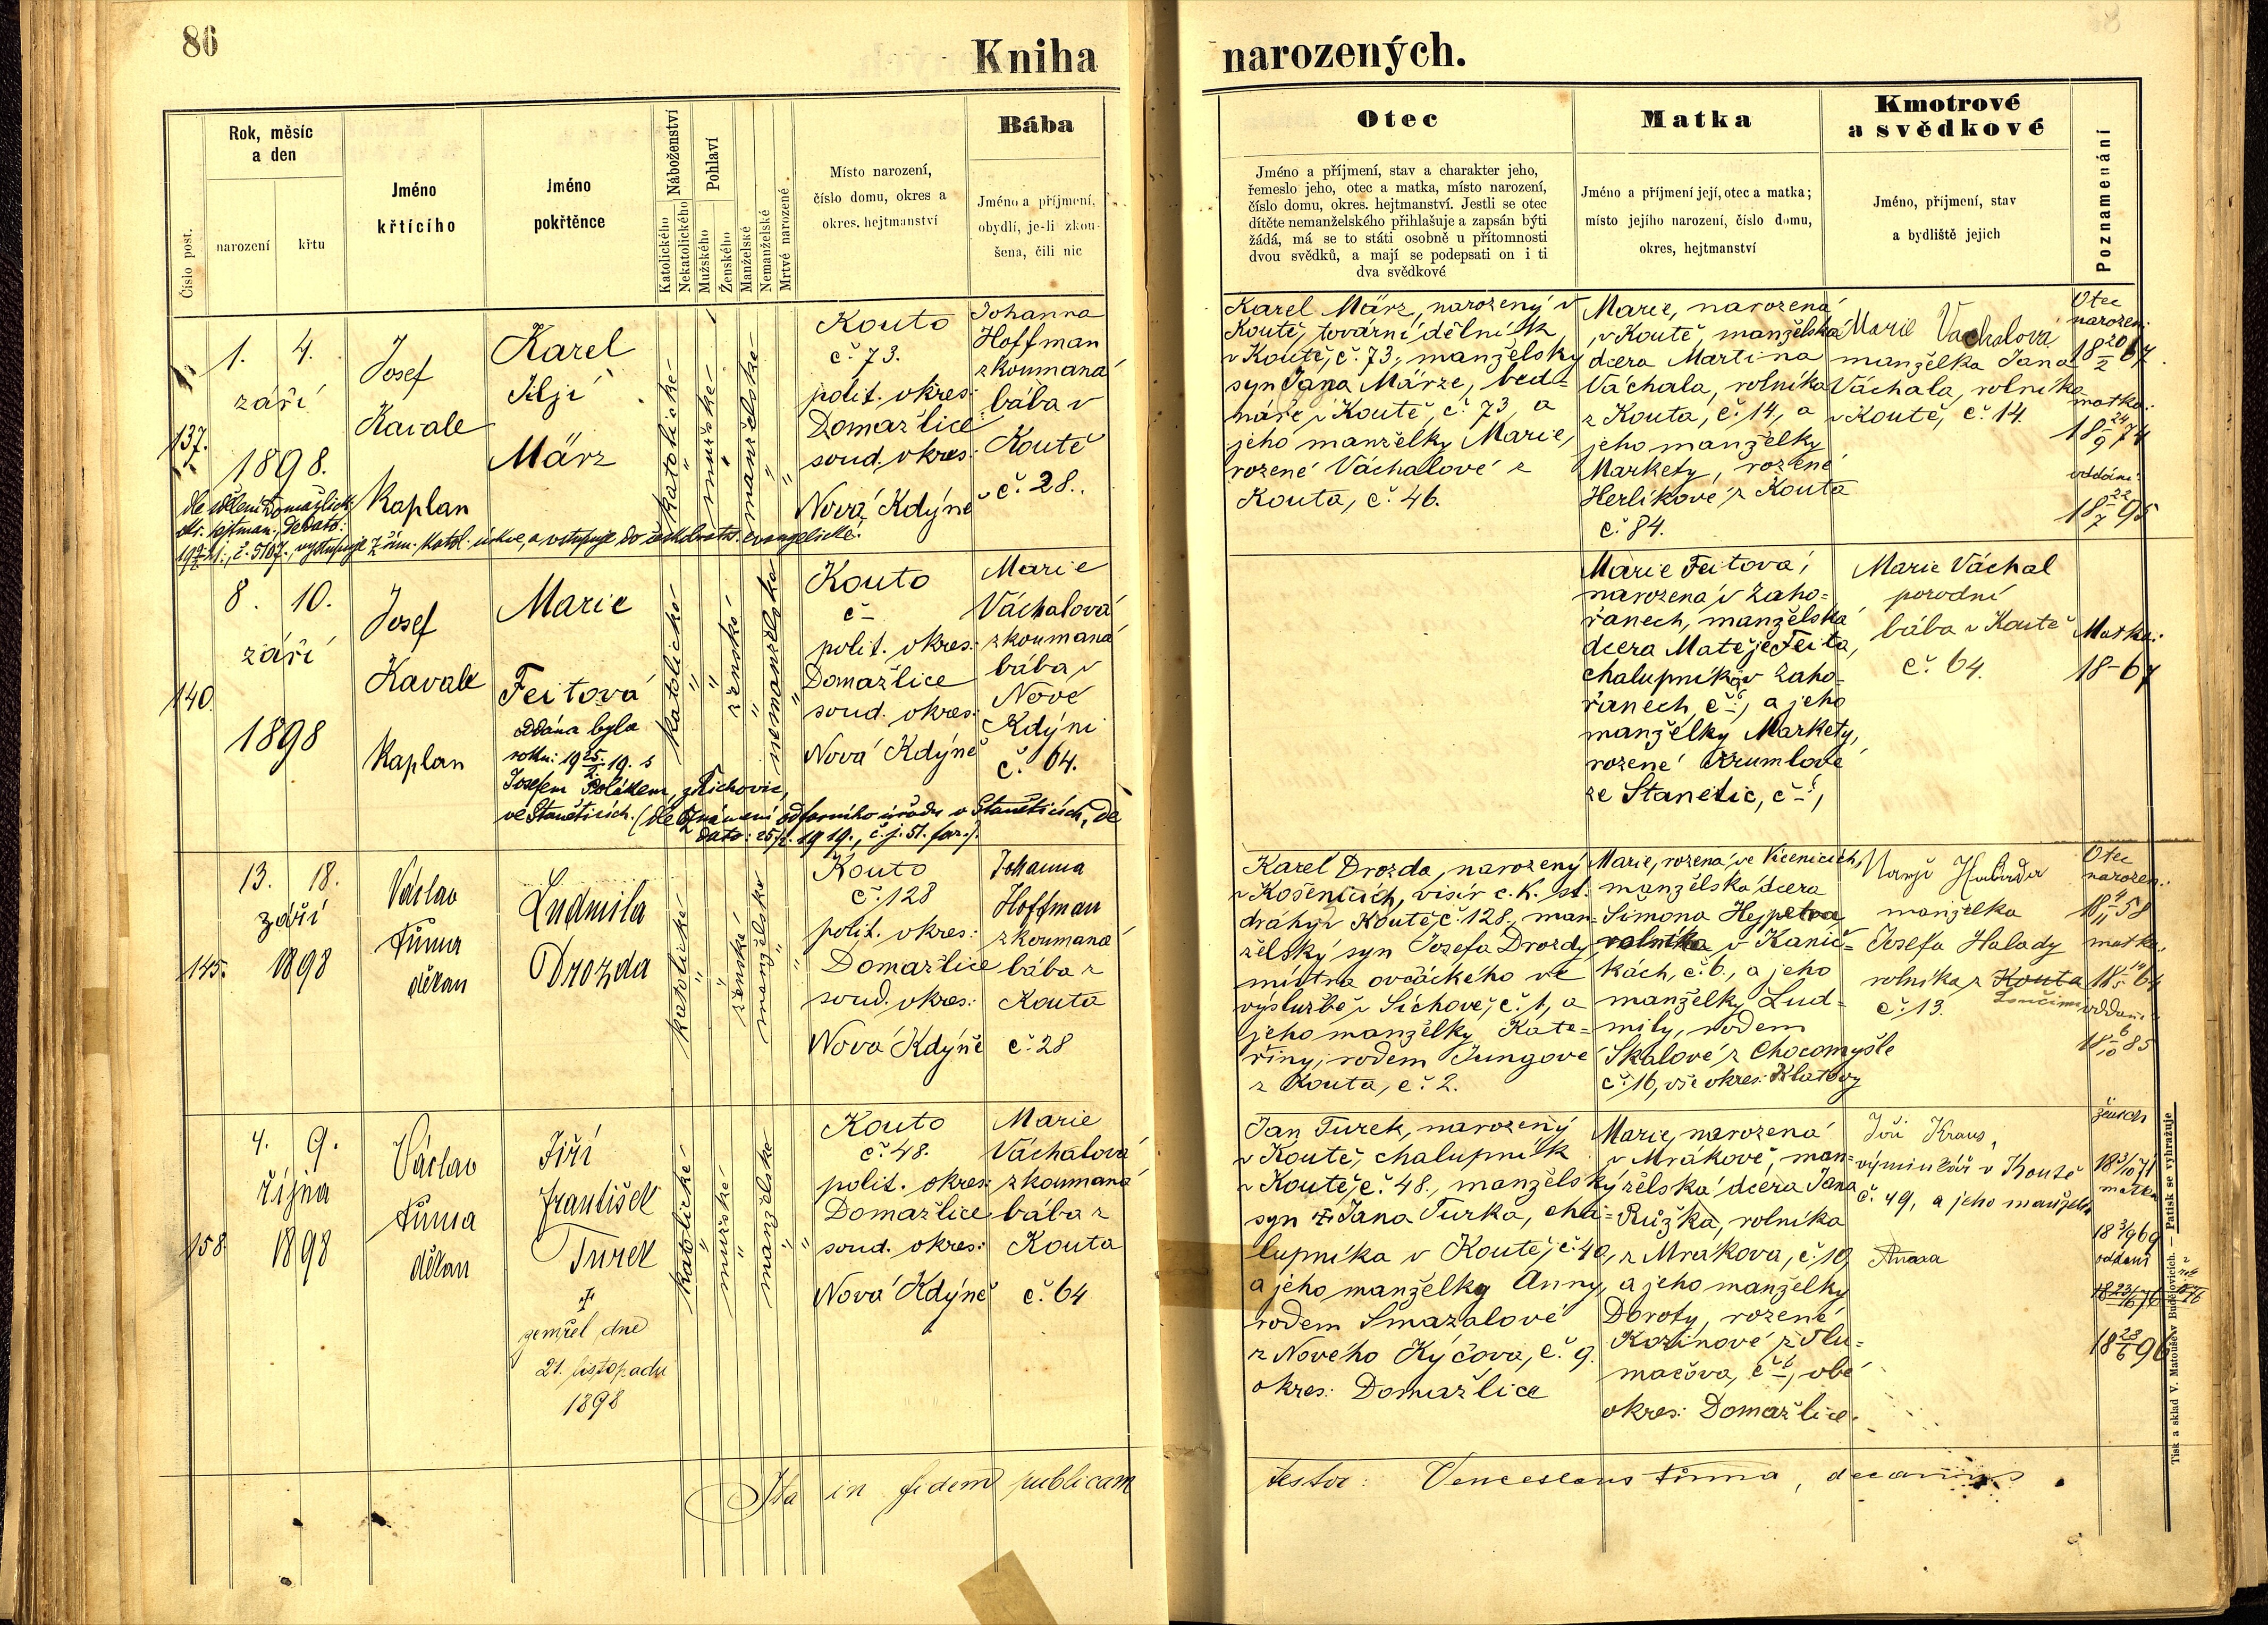 86
Kniha
narozených.
Číslo post.
Rok, měsíc
a den
narození
křtu
Jméno
křtícího
Jméno
pokřtěnce
Náboženství
Katolického
Nekatolického
Pohlaví
Mužského
Ženského
Manželské
Nemanželské
Mrtvě narozené
Místo narození,
číslo domu, okres a
okres. hejtmanství
Bába
Jméno a příjmení,
obydlí, je-li zkou-
šena, čili nic
Otec
Jméno a příjmení, stav a charakter jeho,
řemeslo jeho, otec a matka, místo narození,
číslo domu, okres. hejtmanství. Jestli se otec
dítěte nemanželského přihlašuje a zapsán býti
žádá, má se to státi osobně u přítomnosti
dvou svědků, a mají se podepsati on i ti
dva svědkové
Matka
Jméno a příjmení její, otec a matka;
místo jejího narození, číslo domu,
okres, hejtmanství
Kmotrové
a svědkové
Jméno, příjmení, stav
a bydliště jejich
Poznamenání
137.
1. 4.
září
1898.
Josef
Kavale
Kaplan
Karel
Jiljí
März
katolické
"
mužské
"
manželské
"
"
Kouto
č. 73.
polit. okres:
Domažlice
soud. okres:
Nová Kdýně
Johanna
Hoffman
zkoumaná
bába v
Koutě
č. 28.
Karel März, narozený v
Koutě, tovární dělník
v Koutě, č. 73, manželský
syn Jana Märze, bed-
náře v Koutě, č. 73, a
jeho manželky Marie,
rozené Váchalové z
Kouta, č. 46.
Marie, narozená
v Koutě, manželská
dcera Martina
Váchala, rolníka
z Kouta, č. 14, a
jeho manželky
Markety, rozené
Herlíkové z Kouta
č. 84.
Marie Vachalová
manželka Jana
Váchala, rolníka
v Koutě, č. 14.
Otec
narozen:
18 20/2 67
matka:
18 24/9 74
oddáni:
18 22/7 95
okr. hejtman. de dato:
č. 5107., vystupuje z řím. katol. církve, a vstupuje do českobratr. evangelické.
140.
8. 10.
září
1898
Josef
Kavale
Kaplan
Marie
Feitová
Oddána byla
roku: 19 25/2. 19. s
Josefem Polákem, z Tichovic,
ve Staněticích. (dle oznámení od farního úřadu v Staněticích, de
dato: 25/2. 1919., č. j. 51. far.).
katolické
"
"
ženské
"
nemanželské
"
Kouto
č –
polit. okres:
Domažlice
soud. okres:
Nová Kdýně
Marie
Váchalová
zkoumaná
bába v
Nové
Kdýni
č. 64.
Marie Feitová,
narozená v Zaho-
řanech, manželská
dcera Matěje Feita,
chalupníka v Zaho-
řanech, č –, a jeho
manželky Markety,
rozené Krumlové
ze Stanětic, č –,
Marie Váchal
porodní
bába v Koutě
č. 64.
Matka:
18–67
145.
13. 18.
září
1898
Václav
Tůma
děkan
Ludmila
Drozda
katolické
"
"
ženské
manželské
"
"
Kouto
č. 128
polit. okres:
Domažlice
soud. okres:
Nová Kdýně
Johanna
Hoffman
zkoumaná
bába z
Kouta
č. 28
Karel Drozda, narozený
v Kosenicích, visír c. k. st.
dráhy v Koutě č. 128., man-
želský syn Josefa Drozdy,
mistra ovčáckého ve
výslužbě v Sichově, č. 1, a
jeho manželky Kate-
řiny, rodem Jungové
z Kouta, č. 2.
Marie, rozená ve Vícenicích,
manželská dcera
Šimona Hejpetra
rolníka v Kanič-
kách, č. 6., a jeho
manželky Lud-
mily, rodem
Skalové z Chocomyšle
č. 16, vše okres: Klatovy
manželka
Josefa Halady
rolníka z Kouta
Loučimi
č. 13.
Otec
narozen:
18 4/11 58
matka:
18 14/5 64
oddáni:
18 6/10 85
158.
4. 9.
října
1898
Václav
Tůma
děkan
Jiří
František
Turek
†
zemřel dne
21. listopadu
1898
katolické
"
mužské
"
manželské
"
"
Kouto
č. 48.
polit. okres:
Domažlice
soud. okres:
Nová Kdýně
Marie
Váchalová
zkoumaná
bába z
Kouta
č. 64
Jan Turek, narozený
v Koutě, chalupník
v Koutě č. 48., manželský
syn † Jana Turka, cha-
lupníka v Koutě, č. 40,
a jeho manželky Anny,
rodem Smazalové
z Nového Kýčova, č. 9.
okres: Domažlice
Marie, narozená
v Mrákově, man-
želská dcera Jana
Růžka, rolníka
z Mrákova, č. 19,
a jeho manželky
Doroty, rozené
Kozinové z Tlu-
mačova, č –, obé
okres: Domažlice.
Jiří Kraus,
výminkář v Koutě
č. 49, a jeho manželka
Anna
ženich
18 3/10 71
matka
18 3/9 69
oddáni
18 23/6 96
Ita in fidem publicam
testor: Venceslaus Tůma, decanus
Tisk a sklad V. Matouše v Budějovicích. — Patisk se vyhražuje